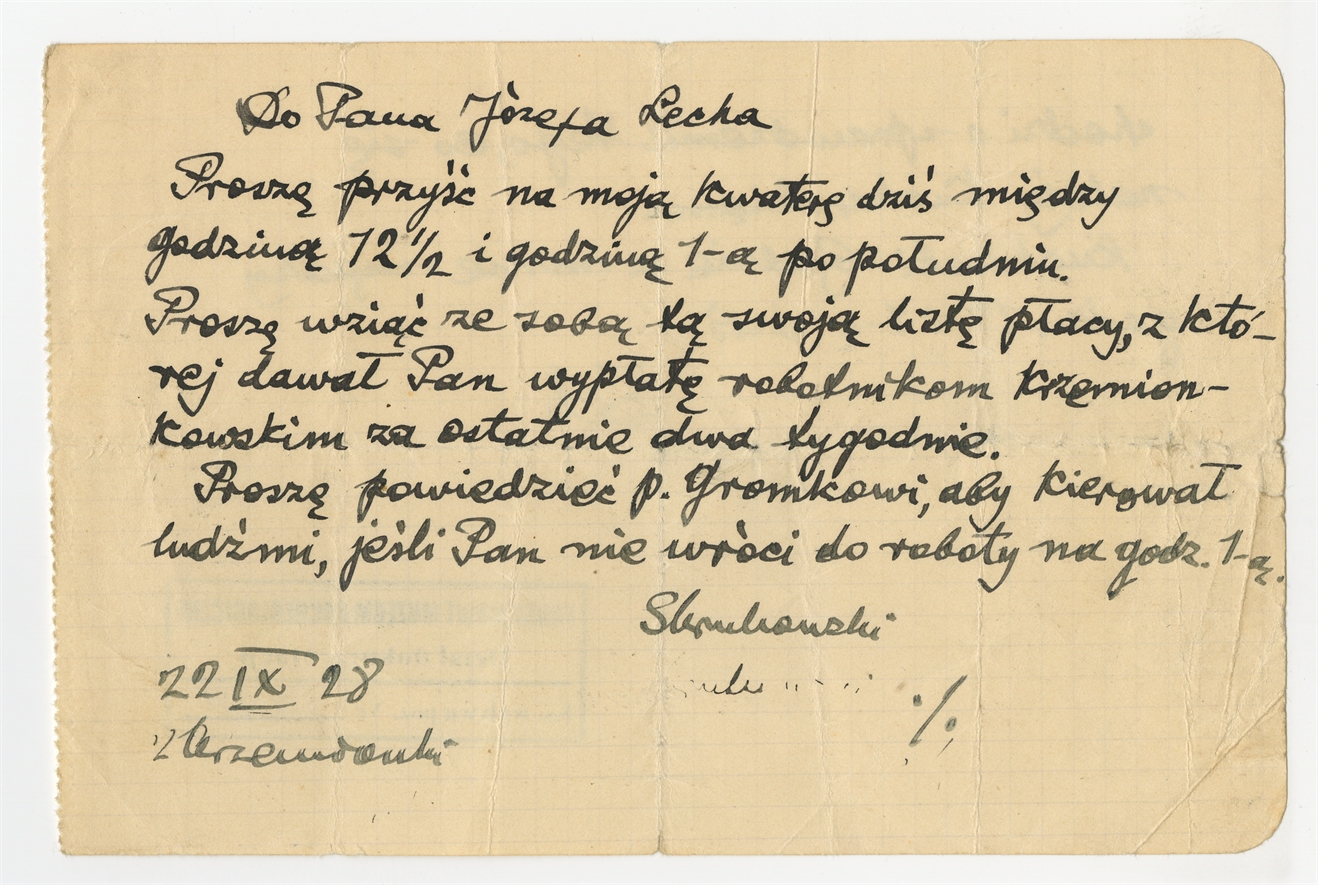 Do Pana Józefa Lecha
Proszę przyjść na moją kwaterę dziś między
godziną 12 1/2 i godziną 1-ą po południu.
Proszę wziąć ze sobą tą swoją listę płacy, z któ-
rej dawał Pan wypłatę robotnikom krzemion-
kowskim za ostatnie dwa tygodnie.
Proszę powiedzieć p. Gromkowi, aby kierował
ludźmi, jeśli Pan nie wróci do roboty na godz. 1-ą.
22 IX 28
Krzemionki